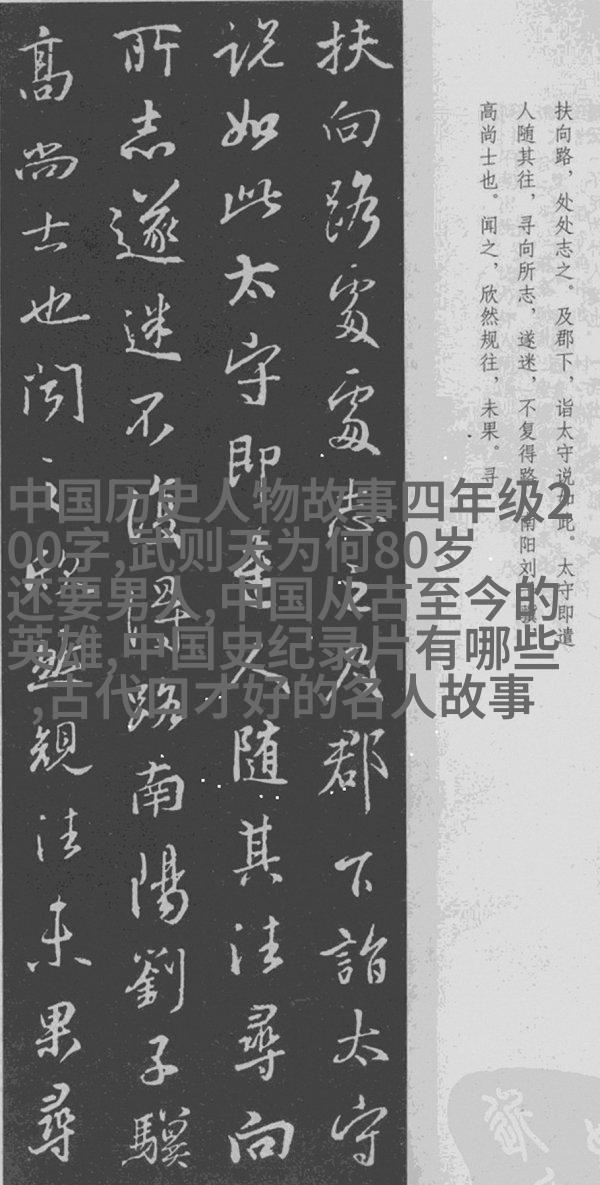 扶向路，处处志之。及郡下，诣太守说如此。太守即遣
人随其往，寻向所志，遂迷，不复得路。南阳刘子骥，
高尚士也。闻之，欣然规往，未果。寻
扶向路處處志之及郡下詣太守
説如此太守即遣人随其往尋向
所志遂迷不復得路南陽劉子驥
高尚士也聞之欣然規往未果尋
中国历史人物故事四年级2
00字,武则天为何80岁
还要男人,中国从古至今的
英雄,中国史纪录片有哪些
,古代口才好的名人故事